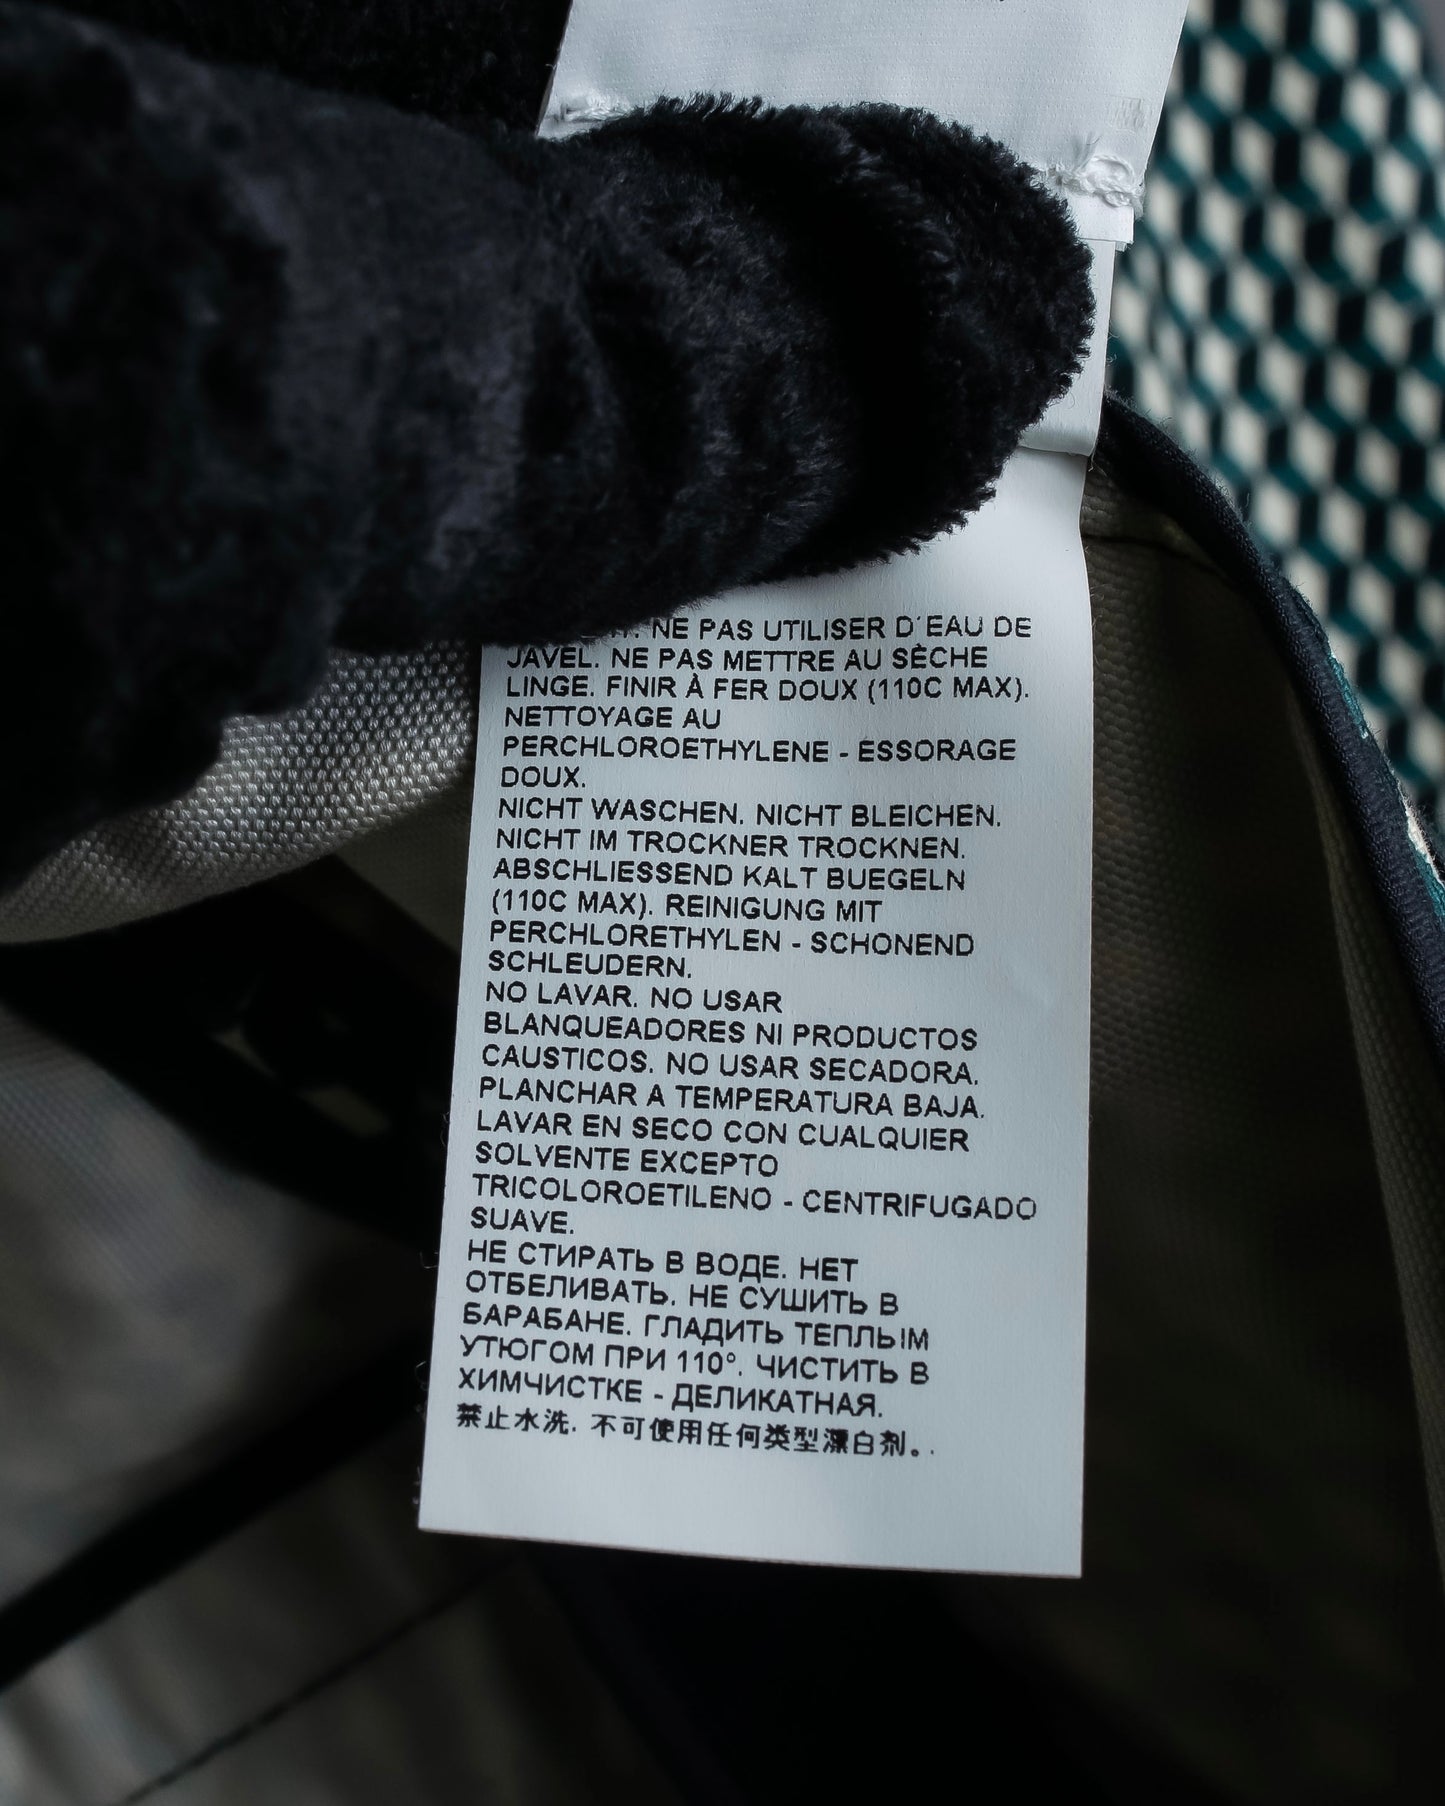 NE PAS UTILISER D'EAU DE
JAVEL. NE PAS METTRE AU SÈCHE
LINGE. FINIR À FER DOUX (110C MAX).
NETTOYAGE AU
PERCHLOROETHYLENE - ESSORAGE
DOUX.
NICHT WASCHEN. NICHT BLEICHEN.
NICHT IM TROCKNER TROCKNEN.
ABSCHLIESSEND KALT BUEGELN
(110C MAX). REINIGUNG MIT
PERCHLORETHYLEN - SCHONEND
SCHLEUDERN.
NO LAVAR. NO USAR
BLANQUEADORES NI PRODUCTOS
CAUSTICOS. NO USAR SECADORA.
PLANCHAR A TEMPERATURA BAJA.
LAVAR EN SECO CON CUALQUIER
SOLVENTE EXCEPTO
TRICOLOROETILENO - CENTRIFUGADO
SUAVE.
НЕ СТИРАТЬ В ВОДЕ. НЕТ
ОТБЕЛИВАТЬ. НЕ СУШИТЬ В
БАРАБАНЕ. ГЛАДИТЬ ТЕПЛЫМ
УТЮГОМ ПРИ 110°. ЧИСТИТЬ В
ХИМЧИСТКЕ - ДЕЛИКАТНАЯ.
禁止水洗. 不可使用任何类型漂白剂。.